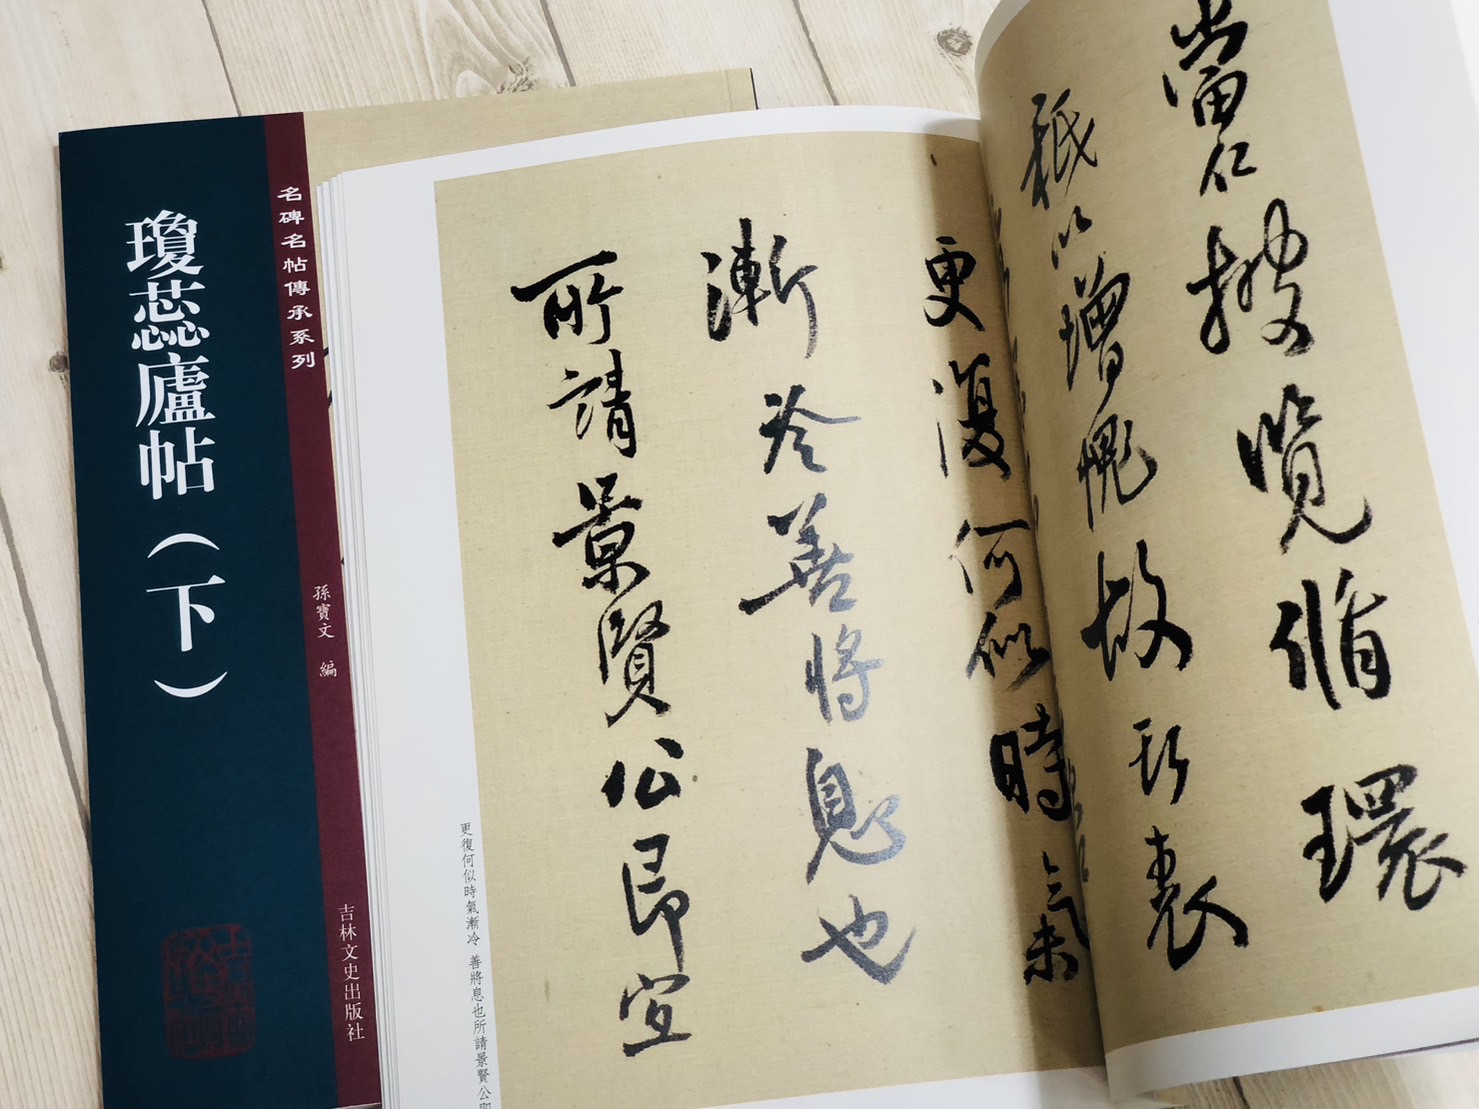 瓊蕊廬帖（下）
名碑名帖傳承系列
孫寶文 編
吉林文史出版社
當仁披覽脩環
秖以增愧故表
更復何似時氣
漸冷善將息也
所請景賢公即宜
更復何似時氣漸冷 善將息也所請景賢公即